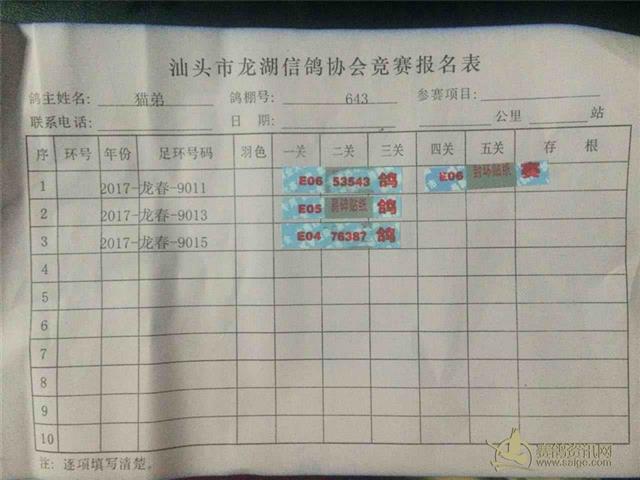 汕头市龙湖信鸽协会竞赛报名表
鸽主姓名: 猫弟 鸽棚号: 643 参赛项目:
联系电话: 日期: 公里 站
序 环号 年份 足环号码 羽色 一关 二关 三关 四关 五关 存根
1 2017-龙春-9011 E06 53543 鸽 E06 封环贴纸 赛
2 2017-龙春-9013 E05 易碎贴纸 鸽
3 2017-龙春-9015 E04 76387 鸽
4
5
6
7
8
9
10
注: 逐项填写清楚。
赛鸽资讯网
www.saige.com